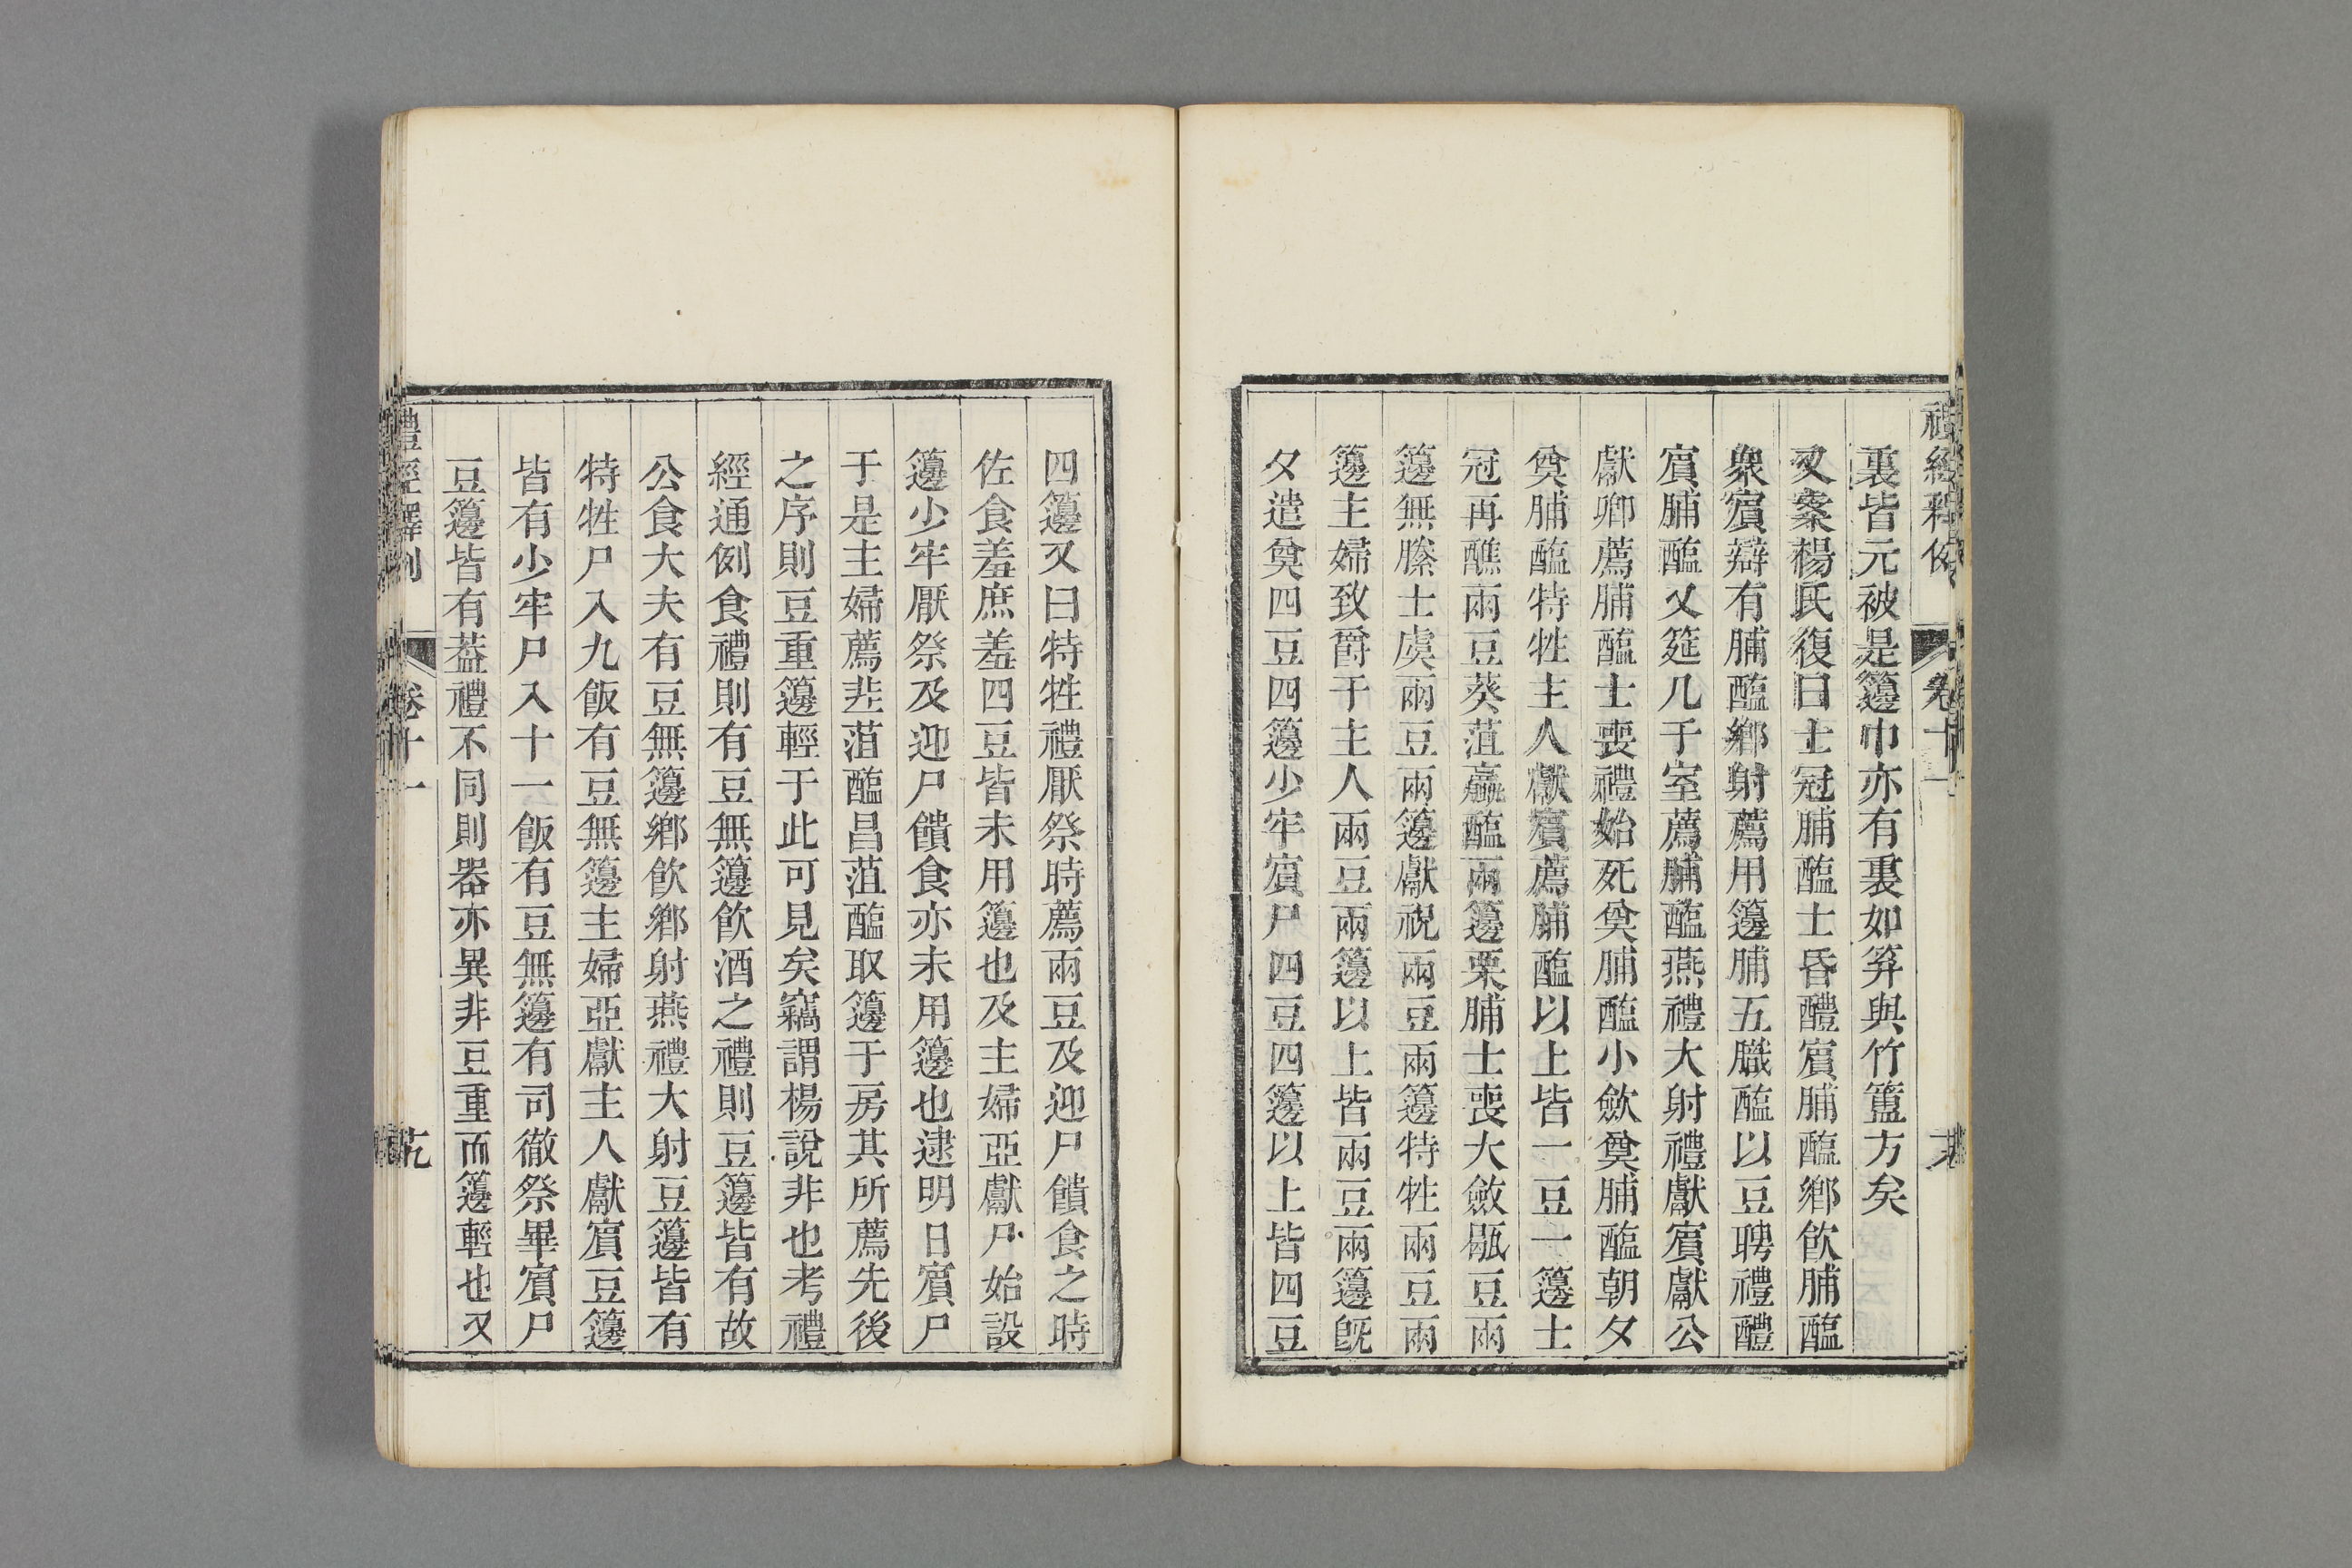 禮經釋例
卷十一
裏皆元被是籩巾亦有裏如笲與竹簠方矣
又案楊氏復曰士冠脯醢士昏醴賓脯醢鄉飲脯醢
衆賓辯有脯醢鄉射薦用籩脯五膱醢以豆聘禮醴
賓脯醢又筵几于室薦脯醢燕禮大射禮獻賓獻公
獻卿薦脯醢士喪禮始死奠脯醢小斂奠脯醢朝夕
奠脯醢特牲主人獻賓薦脯醢以上皆一豆一籩士
冠再醮兩豆葵菹蠃醢兩籩栗脯士喪大斂毼豆兩
籩無縢士虞兩豆兩籩獻祝兩豆兩籩特牲兩豆兩
籩主婦致爵于主人兩豆兩籩以上皆兩豆兩籩旣
夕遣奠四豆四籩少牢賓尸四豆四籩以上皆四豆
四籩又曰特牲禮厭祭時薦兩豆及迎尸饋食之時
佐食羞庶羞四豆皆未用籩也及主婦亞獻尸始設
籩少牢厭祭及迎尸饋食亦未用籩也逮明日賓尸
于是主婦薦韭菹醢昌菹醢取籩于房其所薦先後
之序則豆重籩輕于此可見矣竊謂楊說非也考禮
經通例食禮則有豆無籩飲酒之禮則豆籩皆有故
公食大夫有豆無籩鄉飲鄉射燕禮大射豆籩皆有
特牲尸入九飯有豆無籩主婦亞獻主人獻賓豆籩
皆有少牢尸入十一飯有豆無籩有司徹祭畢賓尸
豆籩皆有葢禮不同則器亦異非豆重而籩輕也又
禮經釋例
卷十一